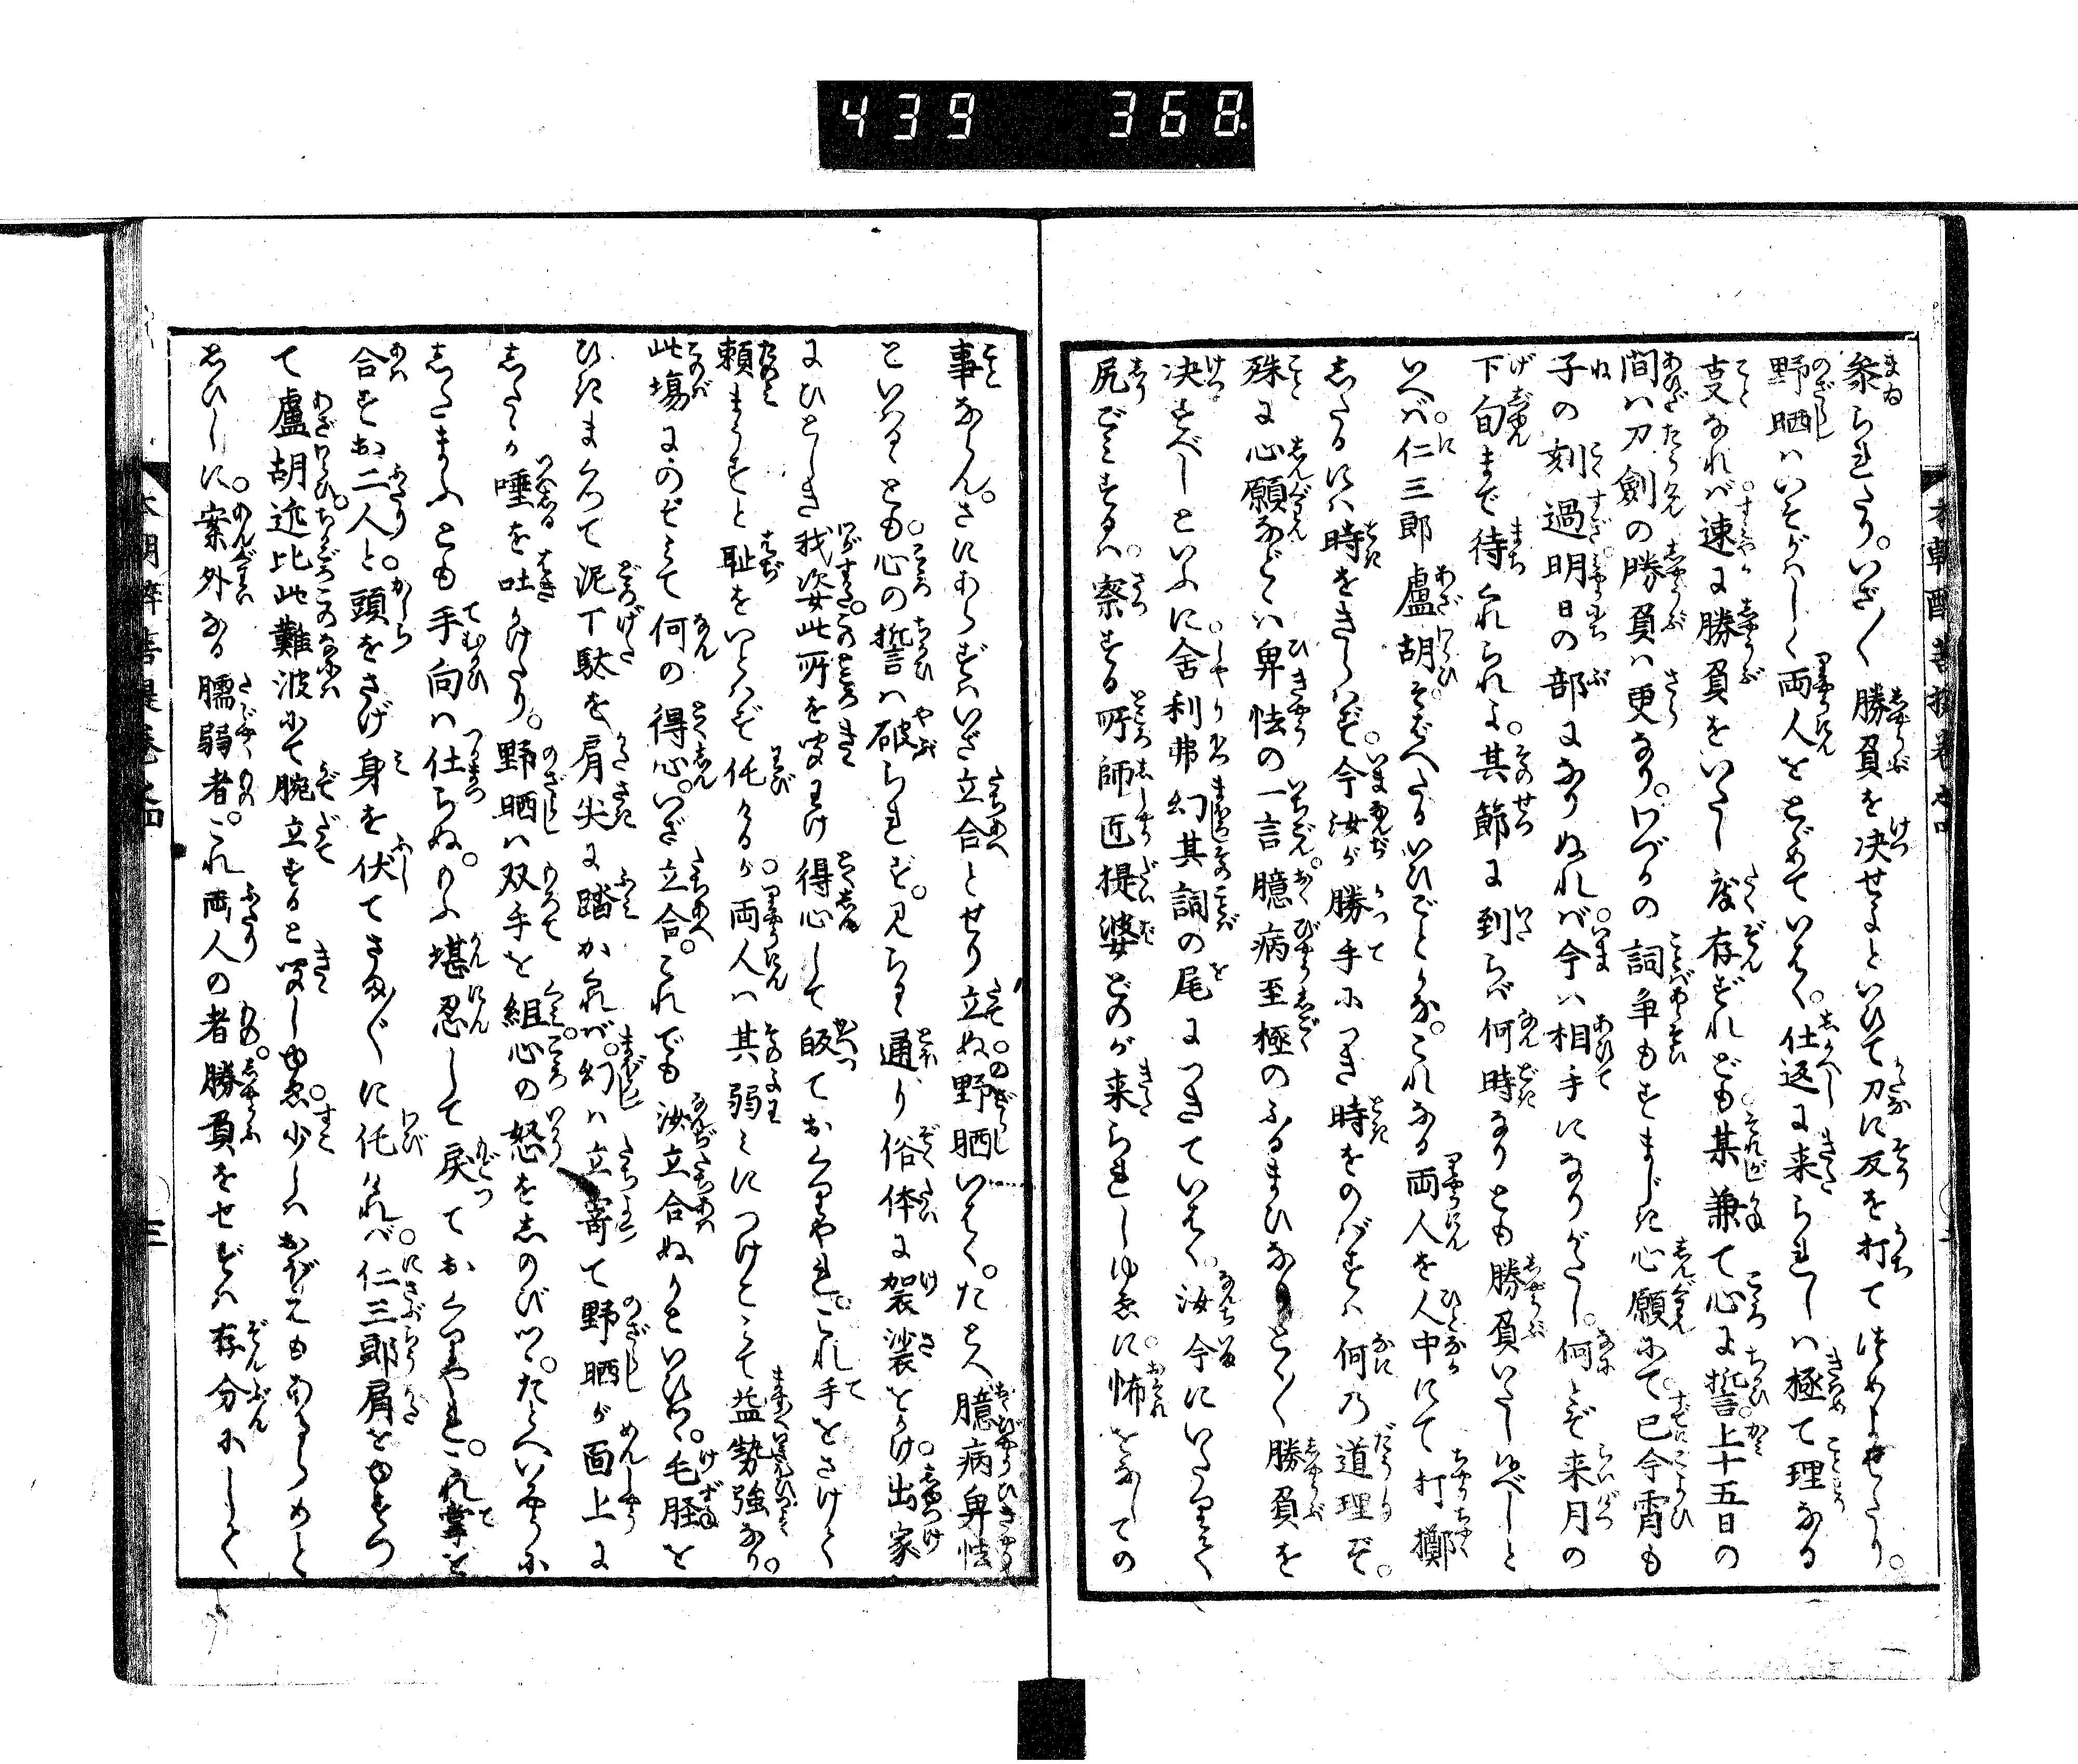 439 368
参られたり。いざ〳〵勝負を决せよといひて刀に反を打てつめよせたり。
野晒ハいそがハしく両人をとゞめていはく。仕返に来られしハ極て理なる
叓なれバ速に勝負をいたし度存ずれども某兼て心に誓。上十五日の
間ハ刀劍の勝負ハ更なり。いづるの詞争もすまじき心願にて已今宵も
子の刻過明日の部になりぬれバ今ハ相手になりがたし。何とぞ来月の
下旬まで待くれられよ。其節に到らバ何時なりとも勝負いたし申べしと
いへバ。仁三郎盧胡そだへたるいひごとかな。これなる両人を人中にて打擲
したるにハ時をきらハず。今汝が勝手につき時をのばすハ何の道理ぞ。
殊に心願などゝハ卑怯の一言臆病至極のふるまひなりとく〳〵勝負を
决すべしといふに舎利弗幻其詞の尾につきていはく。汝今にいたりて
尻ごみするハ。察する所師匠提婆どのが来られしゆゑに。怖をなしての
事ならん。さにあらずハいざ立合とせり立ぬ。野晒いはく。たとへ臆病卑怯
といはるゝとも。心の誓ハ破られず。見らるゝ通り俗体に袈裟をかけ。出家
にひとしき我姿此所を聞わけ得心して皈ておくりやれ。これ手をさげて
頼まうすと耻をいとハず侘けるが。両人ハ其弱みにつけこみて益勢強なり。
此塲にのぞみて何の得心。いざ立合。これでも汝立合ぬかといひつゝ。毛脛を
ひきまくつて泥丁駄を肩尖に踏かくれバ。幻ハ立寄て野晒が面上に
したゝか唾を吐かけたり。野晒ハ双手を組。心の怒をしのびつゝ。たとへいかやうに
したまふとも手向ハ仕らぬ。のふ堪忍して戻ておくりやれ。これ掌を
合すお二人と。頭をさげ身を伏てさま〴〵に侘けれバ。仁三郎肩をゆすつ
て盧胡。近比此難波にて腕立すると聞しゆゑ。少しハおぼえもあるらめと
おもひしに。案外なる臑弱者。これ両人の者。勝負をせずハ存分にしかへ